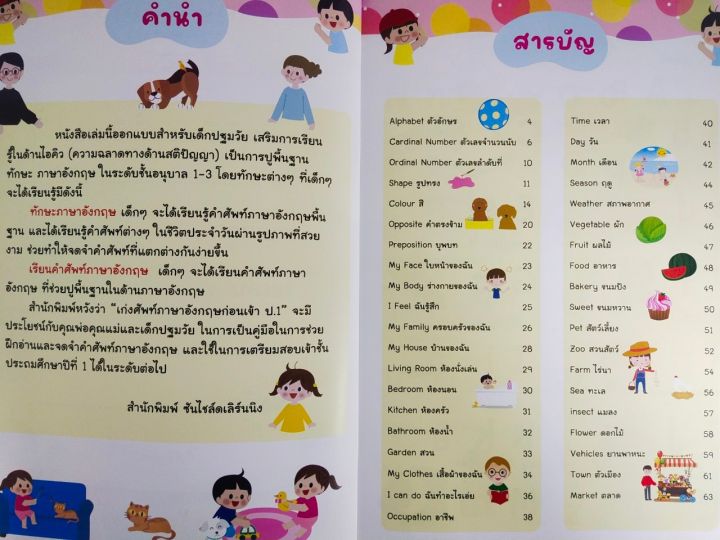 คำนำ
หนังสือเล่มนี้ออกแบบสำหรับเด็กปฐมวัย เสริมการเรียน
รู้ในด้านไอคิว (ความฉลาดทางด้านสติปัญญา) เป็นการปูพื้นฐาน
ทักษะ ภาษาอังกฤษ ในระดับชั้นอนุบาล 1-3 โดยทักษะต่างๆ ที่เด็กๆ
จะได้เรียนรู้มีดังนี้
ทักษะภาษาอังกฤษ เด็กๆ จะได้เรียนรู้คำศัพท์ภาษาอังกฤษพื้น
ฐาน และได้เรียนรู้คำศัพท์ต่างๆ ในชีวิตประจำวันผ่านรูปภาพที่สวย
งาม ช่วยทำให้จดจำคำศัพท์ที่แตกต่างกันง่ายขึ้น
เรียนคำศัพท์ภาษาอังกฤษ เด็กๆ จะได้เรียนคำศัพท์ภาษา
อังกฤษ ที่ช่วยปูพื้นฐานในด้านภาษาอังกฤษ
สำนักพิมพ์หวังว่า "เก่งศัพท์ภาษาอังกฤษก่อนเข้า ป.1" จะมี
ประโยชน์กับคุณพ่อคุณแม่และเด็กปฐมวัย ในการเป็นคู่มือในการช่วย
ฝึกอ่านและจดจำคำศัพท์ภาษาอังกฤษ และใช้ในการเตรียมสอบเข้าชั้น
ประถมศึกษาปีที่ 1 ได้ในระดับต่อไป
สำนักพิมพ์ ซันไชล์ดเลิร์นนิง
สารบัญ
Alphabet ตัวอักษร 4
Cardinal Number ตัวเลขจำนวนนับ 6
Ordinal Number ตัวเลขลำดับที่ 10
Shape รูปทรง 11
Colour สี 14
Opposite คำตรงข้าม 20
Preposition บุพบท 22
My Face ใบหน้าของฉัน 23
My Body ร่างกายของฉัน 24
I Feel ฉันรู้สึก 25
My Family ครอบครัวของฉัน 26
My House บ้านของฉัน 28
Living Room ห้องนั่งเล่น 29
Bedroom ห้องนอน 30
Kitchen ห้องครัว 31
Bathroom ห้องน้ำ 32
Garden สวน 33
My Clothes เสื้อผ้าของฉัน 34
I can do ฉันทำอะไรเอ่ย 36
Occupation อาชีพ 38
Time เวลา 40
Day วัน 41
Month เดือน 42
Season ฤดู 44
Weather สภาพอากาศ 45
Vegetable ผัก 46
Fruit ผลไม้ 47
Food อาหาร 48
Bakery ขนมปัง 49
Sweet ขนมหวาน 50
Pet สัตว์เลี้ยง 51
Zoo สวนสัตว์ 52
Farm ไร่นา 54
Sea ทะเล 56
insect แมลง 57
Flower ดอกไม้ 58
Vehicles ยานพาหนะ 59
Town ตัวเมือง 61
Market ตลาด 63